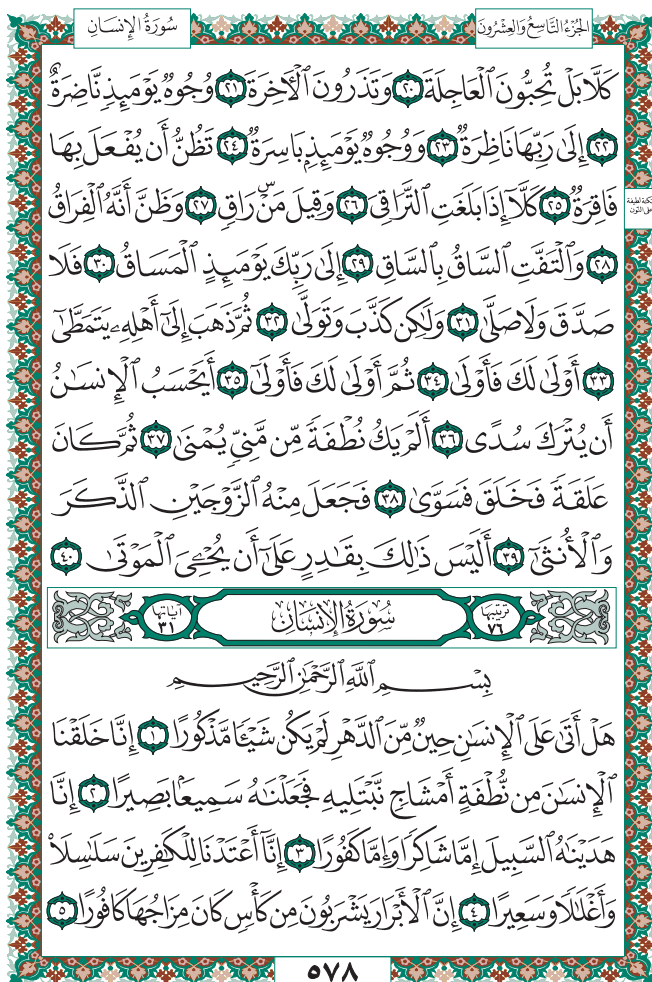 سُورَةُ الإِنسَانِ
الجُزْءُ التَّاسِعُ وَالعِشْرُونَ
كَلَّا بَلْ تُحِبُّونَ ٱلْعَاجِلَةَ ٢٠ وَتَذَرُونَ ٱلْأٓخِرَةَ ٢١ وُجُوهٌ يَوْمَئِذٍ نَّاضِرَةٌ
٢٢ إِلَىٰ رَبِّهَا نَاظِرَةٌ ٢٣ وَوُجُوهٌ يَوْمَئِذٍۭ بَاسِرَةٌ ٢٤ تَظُنُّ أَن يُفْعَلَ بِهَا
فَاقِرَةٌ ٢٥ كَلَّآ إِذَا بَلَغَتِ ٱلتَّرَاقِىَ ٢٦ وَقِيلَ مَنْۜ رَاقٍ ٢٧ وَظَنَّ أَنَّهُ ٱلْفِرَاقُ
سكتة لطيفة على النون
٢٨ وَٱلْتَفَّتِ ٱلسَّاقُ بِٱلسَّاقِ ٢٩ إِلَىٰ رَبِّكَ يَوْمَئِذٍ ٱلْمَسَاقُ ٣٠ فَلَا
صَدَّقَ وَلَا صَلَّىٰ ٣١ وَلَٰكِن كَذَّبَ وَتَوَلَّىٰ ٣٢ ثُمَّ ذَهَبَ إِلَىٰٓ أَهْلِهِۦ يَتَمَطَّىٰٓ
٣٣ أَوْلَىٰ لَكَ فَأَوْلَىٰ ٣٤ ثُمَّ أَوْلَىٰ لَكَ فَأَوْلَىٰٓ ٣٥ أَيَحْسَبُ ٱلْإِنسَٰنُ
أَن يُتْرَكَ سُدًى ٣٦ أَلَمْ يَكُ نُطْفَةً مِّن مَّنِىٍّ يُمْنَىٰ ٣٧ ثُمَّ كَانَ
عَلَقَةً فَخَلَقَ فَسَوَّىٰ ٣٨ فَجَعَلَ مِنْهُ ٱلزَّوْجَيْنِ ٱلذَّكَرَ
وَٱلْأُنثَىٰٓ ٣٩ أَلَيْسَ ذَٰلِكَ بِقَٰدِرٍ عَلَىٰٓ أَن يُحْۦِىَ ٱلْمَوْتَىٰ ٤٠
ترتيبها ٧٦ سُورَةُ الإِنسَانِ آياتها ٣١
بِسْمِ ٱللَّهِ ٱلرَّحْمَٰنِ ٱلرَّحِيمِ
هَلْ أَتَىٰ عَلَى ٱلْإِنسَٰنِ حِينٌ مِّنَ ٱلدَّهْرِ لَمْ يَكُن شَيْـًٔا مَّذْكُورًا ١ إِنَّا خَلَقْنَا
ٱلْإِنسَٰنَ مِن نُّطْفَةٍ أَمْشَاجٍ نَّبْتَلِيهِ فَجَعَلْنَٰهُ سَمِيعًۢا بَصِيرًا ٢ إِنَّا
هَدَيْنَٰهُ ٱلسَّبِيلَ إِمَّا شَاكِرًا وَإِمَّا كَفُورًا ٣ إِنَّآ أَعْتَدْنَا لِلْكَٰفِرِينَ سَلَٰسِلَا۟
وَأَغْلَٰلًا وَسَعِيرًا ٤ إِنَّ ٱلْأَبْرَارَ يَشْرَبُونَ مِن كَأْسٍ كَانَ مِزَاجُهَا كَافُورًا ٥
٥٧٨